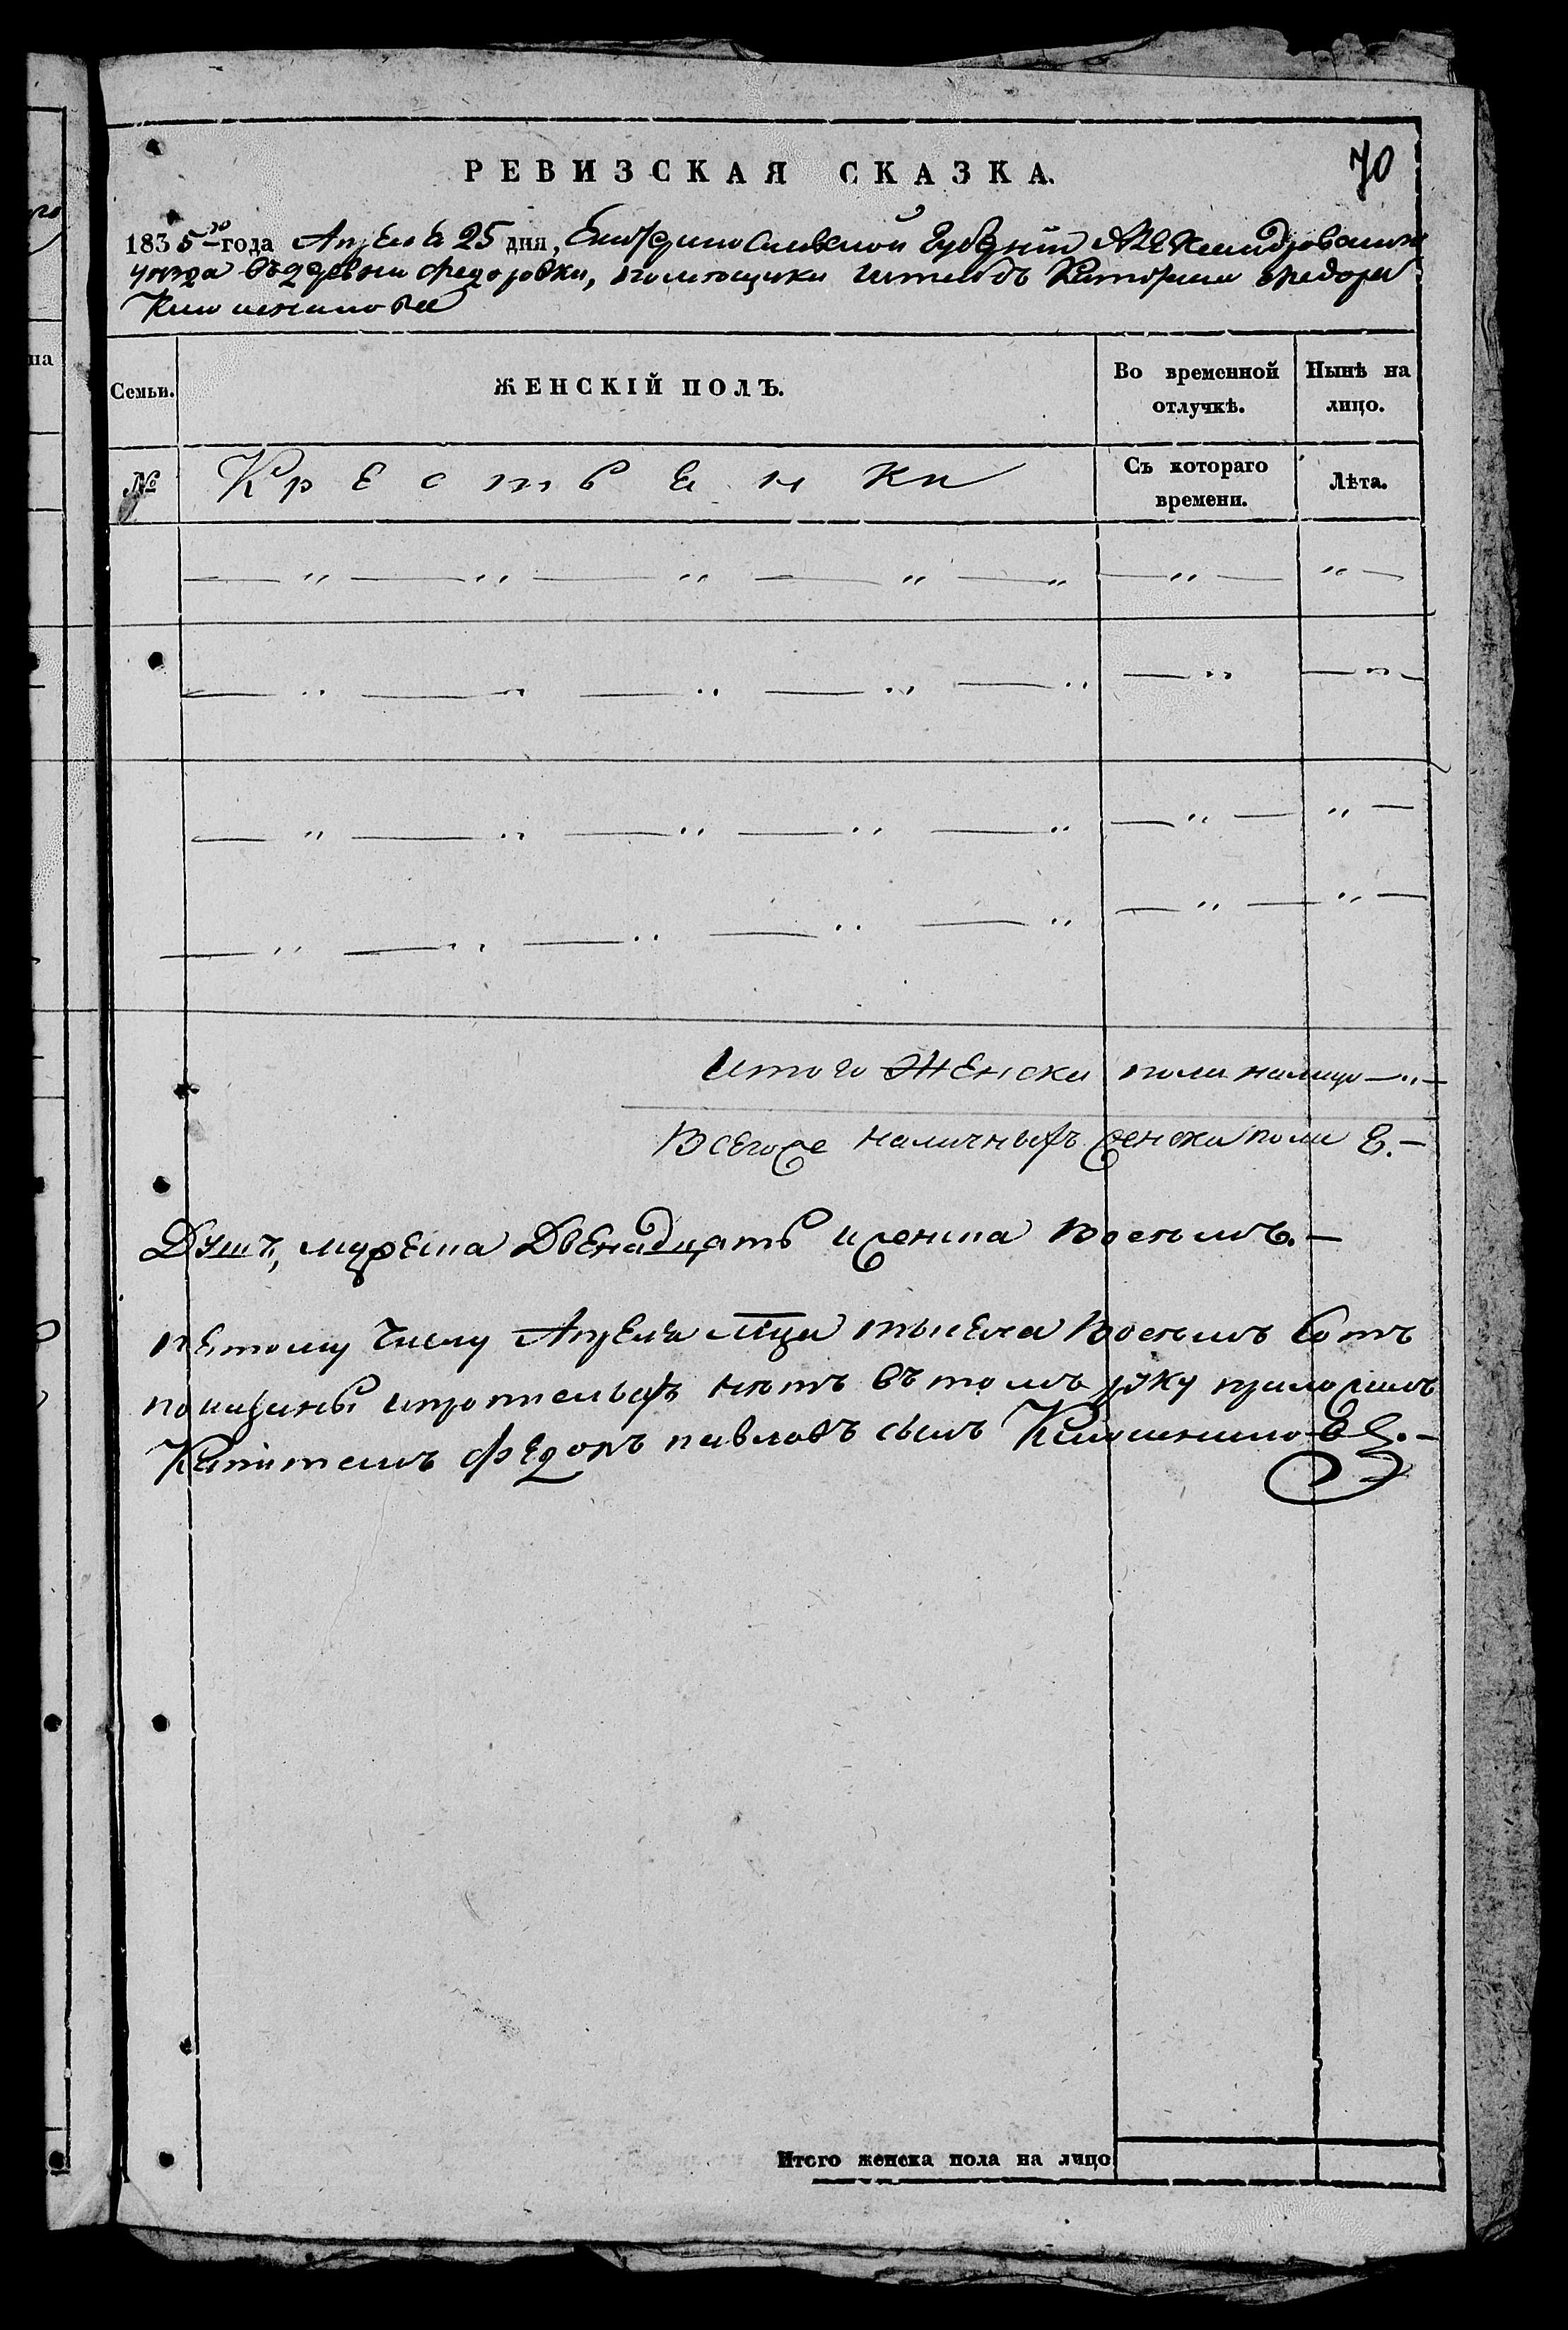 РЕВИЗСКАЯ СКАЗКА.
70
1835го года Апреля 25 дня, Екатеринославской Губерніи Александровскаго
уезда въ деревни Федоровки, помещика Капитана Федора
Крестьянки
Семьи.
ЖЕНСКІЙ ПОЛЪ.
Во временной отлучкѣ.
Нынѣ на лицо.
№
Съ котораго времени.
Лѣта.
Итого Женска пола налицо — „ —
Всегоже наличныхъ женска пола 8. —
Душъ, мужеска Двенадцать и женска Восемь. —
Апреля Мца тысяча Восемь Сотъ
нетъ въ томъ руку приложилъ
Федоръ Павловъ сынъ
Итого женска пола на лицо